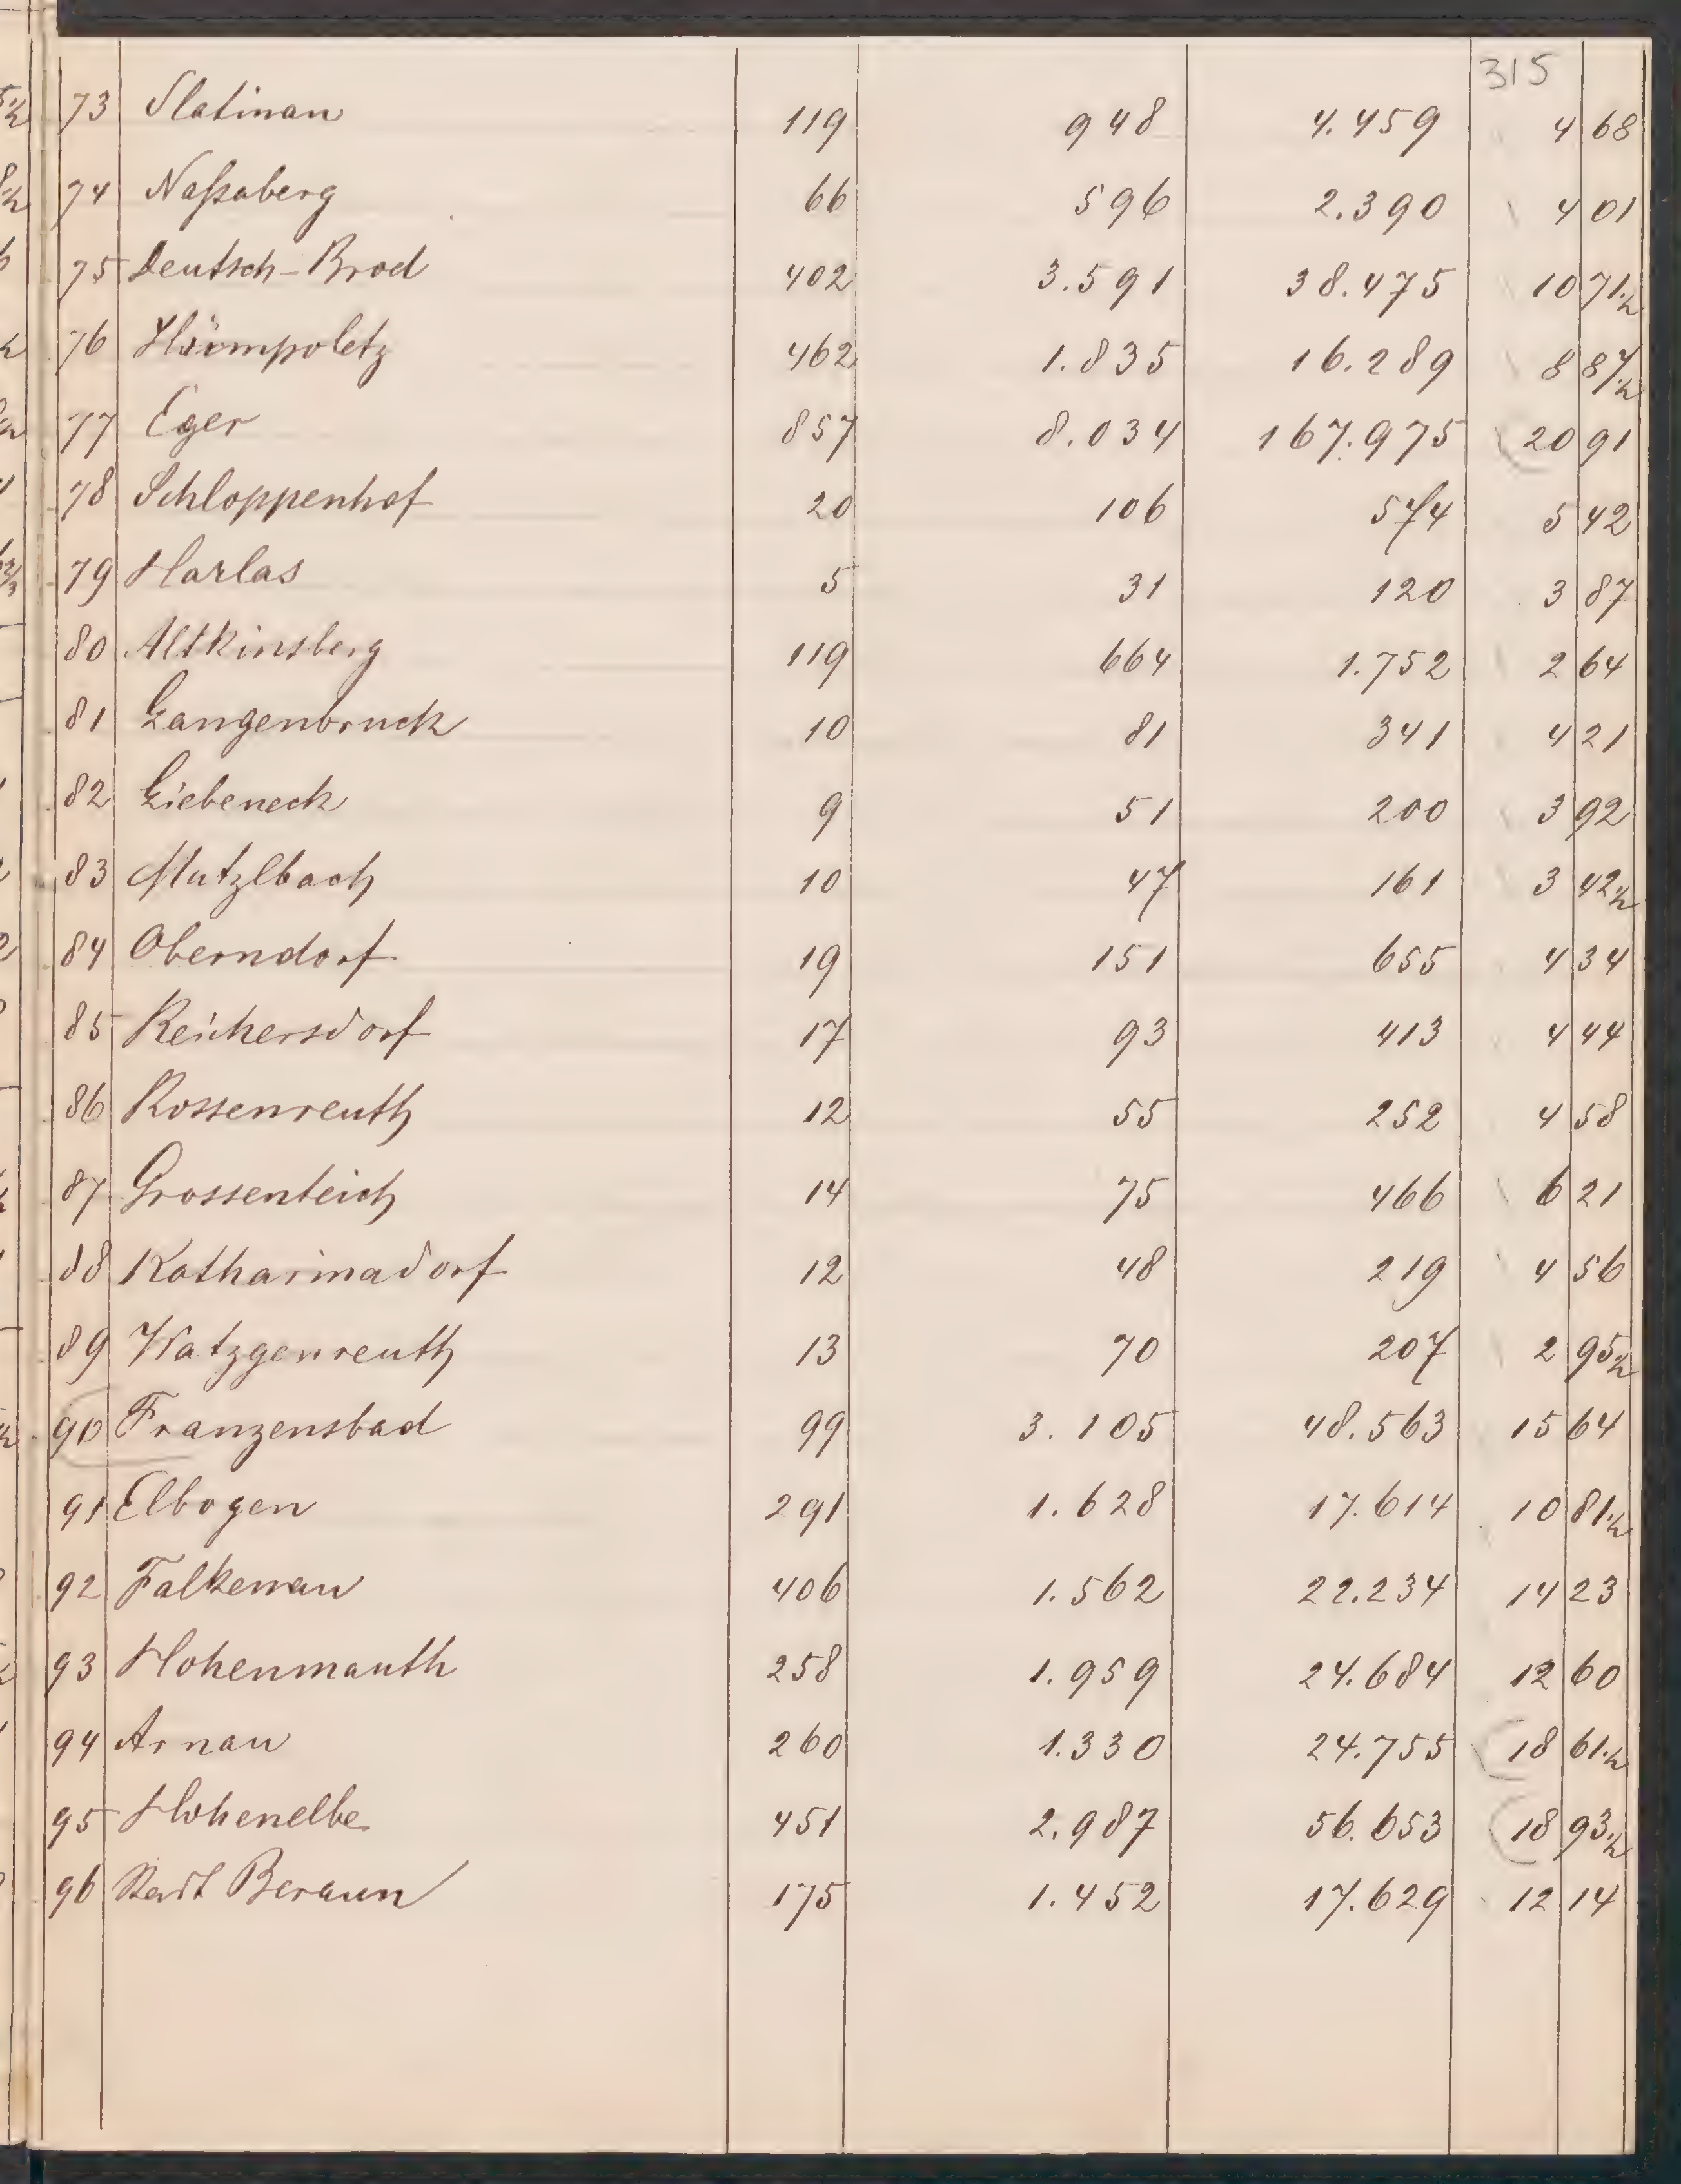 315
73 Slatinan 119 948 4.459 4 68
74 Naßaberg 66 596 2.390 4 01
75 Deutsch-Brod 402 3.591 38.475 10 71½
76 Humpoletz 462 1.835 16.289 8 87½
77 Eger 857 8.034 167.975 20 91
78 Schloppenhof 20 106 574 5 42
79 Harlas 5 31 120 3 87
80 Altkinsberg 119 664 1.752 2 64
81 Langenbruck 10 81 341 4 21
82 Liebeneck 9 51 200 3 92
83 Mutzlbach 10 47 161 3 42½
84 Oberndorf 19 151 655 4 34
85 Reichersdorf 17 93 413 4 44
86 Rossenreuth 12 55 252 4 58
87 Grossenteich 14 75 466 6 21
88 Katharinadorf 12 48 219 4 56
89 Watzgenreuth 13 70 207 2 95½
90 Franzensbad 99 3.105 48.563 15 64
91 Elbogen 291 1.628 17.614 10 81½
92 Falkenau 406 1.562 22.234 14 23
93 Hohenmauth 258 1.959 24.684 12 60
94 Arnau 260 1.330 24.755 18 61½
95 Hohenelbe 451 2.987 56.653 18 93½
96 Stadt Beraun 175 1.452 17.629 12 14